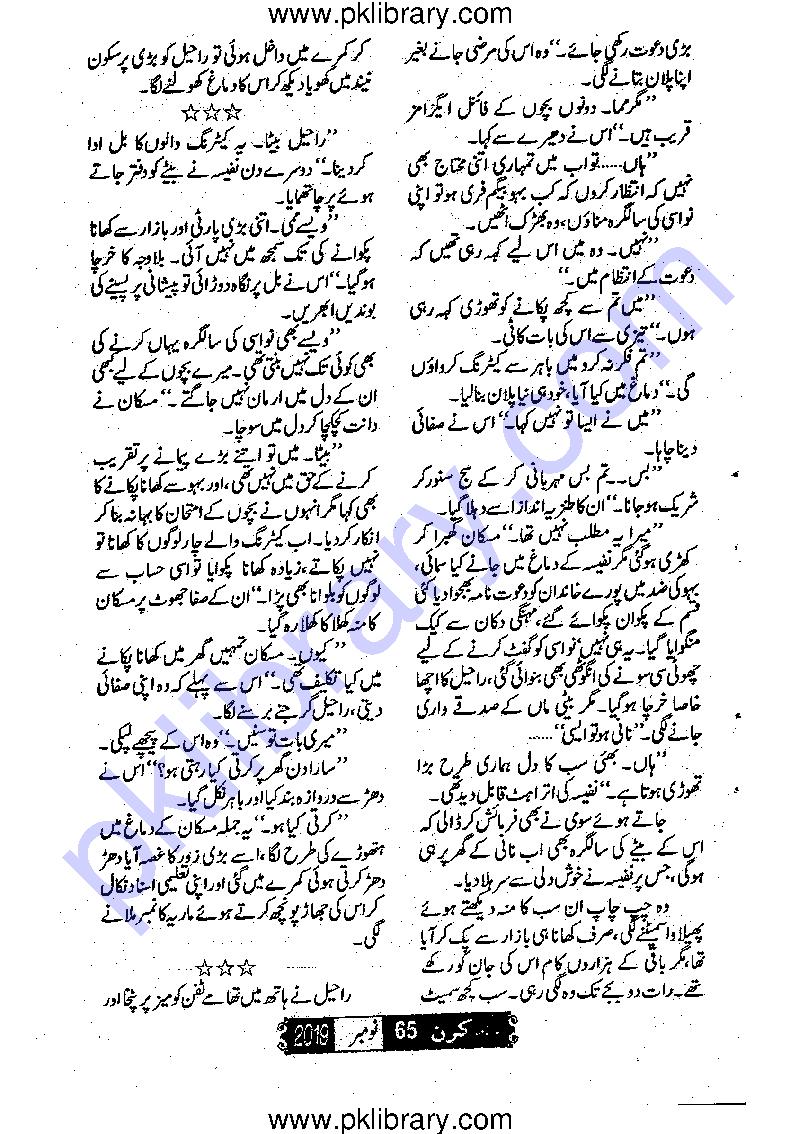 www.pklibrary.com
بڑی دعوت رکھی جائے۔“ وہ اس کی مرضی جانے بغیر
اپنا پلان بتانے لگی۔
”مگر مما۔ دونوں بچوں کے فائنل ایگزامز
قریب ہیں۔“ اس نے دھیرے سے کہا۔
”ہاں..... تو اب میں تمہاری اتنی محتاج بھی
نہیں کہ انتظار کروں کہ کب بہو بیگم فری ہو تو اپنی
نواسی کی سالگرہ مناؤں، وہ بھڑک اٹھیں۔
”نہیں۔ وہ میں اس لیے کہہ رہی تھیں کہ
دعوت کے انتظام میں۔“
”میں تم سے کچھ پکانے کو تھوڑی کہہ رہی
ہوں۔“ تیزی سے اس کی بات کاٹی۔
”تم فکر نہ کرو میں باہر سے کیٹرنگ کرواؤں
گی۔“ دماغ میں کیا آیا، خود ہی نیا پلان بنا لیا۔
”میں نے ایسا تو نہیں کہا۔“ اس نے صفائی
دینا چاہا۔
”بس۔۔ تم بس مہربانی کر کے سج سنور کر
شریک ہو جانا۔“ ان کا طنزیہ انداز اسے دہلا گیا۔
”میرا یہ مطلب نہیں تھا۔“ مسکان گھبرا کر
کھڑی ہو گئی مگر نفیسہ کے دماغ میں جانے کیا سمائی،
بہو کی ضد میں پورے خاندان کو دعوت نامہ بھجوا دیا کئی
قسم کے پکوان پکوائے گئے، مہنگی دکان سے کیک
منگوایا گیا۔ یہ ہی نہیں نواسی کو گفٹ کرنے کے لیے
چھوٹی سی سونے کی انگوٹھی بھی بنوائی گئی، راحیل کا اچھا
خاصا خرچا ہو گیا۔ مگر بیٹی ماں کے صدقے واری
جانے لگی۔ ”نانی ہو تو ایسی“......
”ہاں۔ بھئی سب کا دل ہماری طرح بڑا
تھوڑی ہوتا ہے۔“ نفیسہ کی اتراہٹ قابل دید تھی۔
جاتے ہوئے سومی نے بھی فرمائش کر ڈالی کہ
اس کے بیٹے کی سالگرہ بھی اب نانی کے گھر پر ہی
ہوگی، جس پر نفیسہ نے خوش دلی سے سر ہلا دیا۔
وہ چپ چاپ ان سب کا منہ دیکھتے ہوئے
پھیلاوا سمیٹنے لگی، صرف کھانا ہی بازار سے پک کر آیا
تھا، مگر باقی کے ہزاروں کام اس کی جان کو رکھے
تھے۔ رات دو بجے تک وہ لگی رہی۔ سب کچھ سمیٹ
کر کمرے میں داخل ہوئی تو راحیل کو بڑی پرسکون
نیند میں کھویا دیکھ کر اس کا دماغ کھولنے لگا۔
☆☆☆
”راحیل بیٹا۔ یہ کیٹرنگ والوں کا بل ادا
کر دینا۔“ دوسرے دن نفیسہ نے بیٹے کو دفتر جاتے
ہوئے پرچا تھمایا۔
”ویسے ممی۔ اتنی بڑی پارٹی اور بازار سے کھانا
پکوانے کی تک سمجھ میں نہیں آئی۔ بلاوجہ کا خرچا
ہو گیا۔“ اس نے بل پر نگاہ دوڑائی تو پیشانی پر پسینے کی
بوندیں ابھریں۔
”ویسے بھی نواسی کی سالگرہ یہاں کرنے کی
بھی کوئی تک نہیں بنتی تھی۔ میرے بچوں کے لیے کبھی
ان کے دل میں ارمان نہیں جاگتے۔“ مسکان نے
دانت کچکچا کر دل میں سوچا۔
”بیٹا۔ میں تو اتنے بڑے پیمانے پر تقریب
کرنے کے حق میں نہیں تھی، اور بہو سے کھانا پکانے کا
بھی کہا مگر انہوں نے بچوں کے امتحان کا بہانہ بنا کر
انکار کر دیا۔ اب کیٹرنگ والے چار لوگوں کا کھانا تو
نہیں پکاتے، زیادہ کھانا پکوایا تو اسی حساب سے
لوگوں کو بلوانا بھی پڑا۔“ ان کے صفا جھوٹ پر مسکان
کا منہ کھلا کا کھلا رہ گیا۔
”کیوں۔ مسکان تمہیں گھر میں کھانا پکانے
میں کیا تکلیف تھی۔“ اس سے پہلے کہ وہ اپنی صفائی
دیتی، راحیل گرجنے برسنے لگا۔
”میری بات تو سنیں۔“ وہ اس کے پیچھے لپکی۔
”سارا دن گھر پر کرتی کیا رہتی ہو؟“ اس نے
دھڑ سے دروازہ بند کیا اور باہر نکل گیا۔
”کرتی کیا ہو۔“ یہ جملہ مسکان کے دماغ میں
ہتھوڑے کی طرح لگا، اسے بڑی زور کا غصہ آیا دھڑ
دھڑ کرتی ہوئی کمرے میں گئی اور اپنی تعلیمی اسناد نکال
کر اس کی جھاڑ پونچھ کرتے ہوئے ماریہ کا نمبر ملانے
لگی۔
☆☆☆
راحیل نے ہاتھ میں تھامے ٹفن کو میز پر پٹخا اور
کرن 65 نومبر 2019
www.pklibrary.com
pklibrary.com